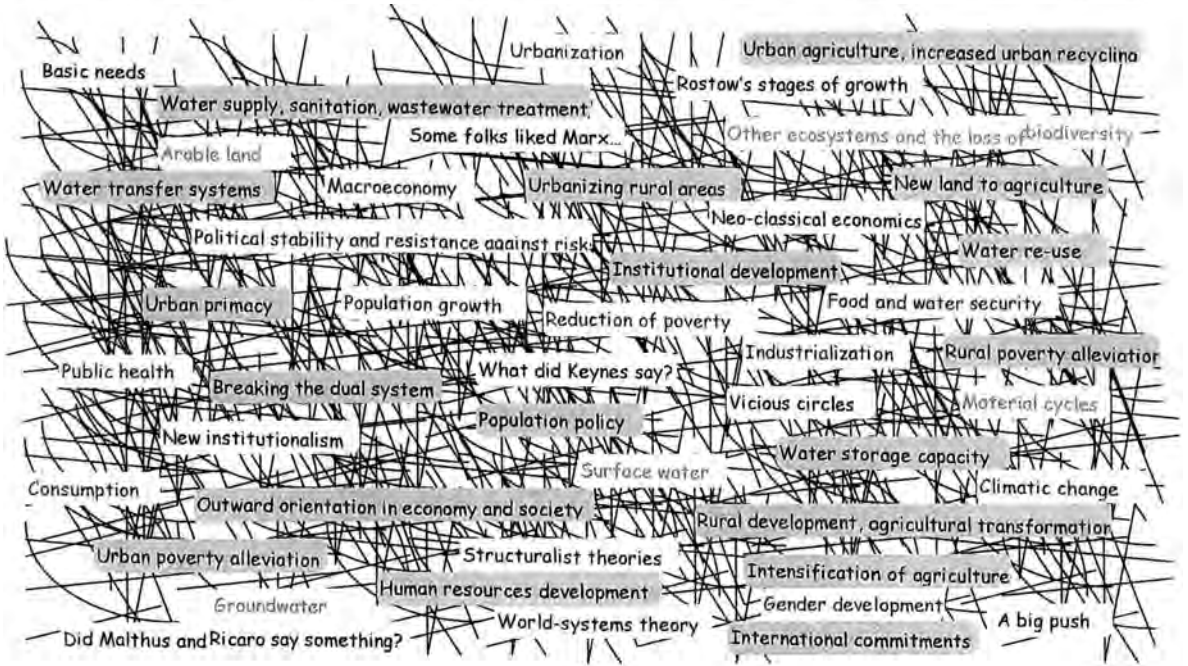 Urbanization
Urban agriculture, increased urban recycling
Basic needs
Rostow's stages of growth
Water supply, sanitation, wastewater treatment
Some folks liked Marx...
Other ecosystems and the loss of biodiversity
Arable land
Water transfer systems
Macroeconomy
Urbanizing rural areas
New land to agriculture
Neo-classical economics
Political stability and resistance against risks
Water re-use
Institutional development
Urban primacy
Population growth
Food and water security
Reduction of poverty
Industrialization
Rural poverty alleviation
Public health
What did Keynes say?
Breaking the dual system
Vicious circles
Material cycles
Population policy
New institutionalism
Water storage capacity
Surface water
Consumption
Climatic change
Outward orientation in economy and society
Rural development, agricultural transformation
Urban poverty alleviation
Structuralist theories
Intensification of agriculture
Human resources development
Groundwater
Gender development
World-systems theory
A big push
Did Malthus and Ricaro say something?
International commitments